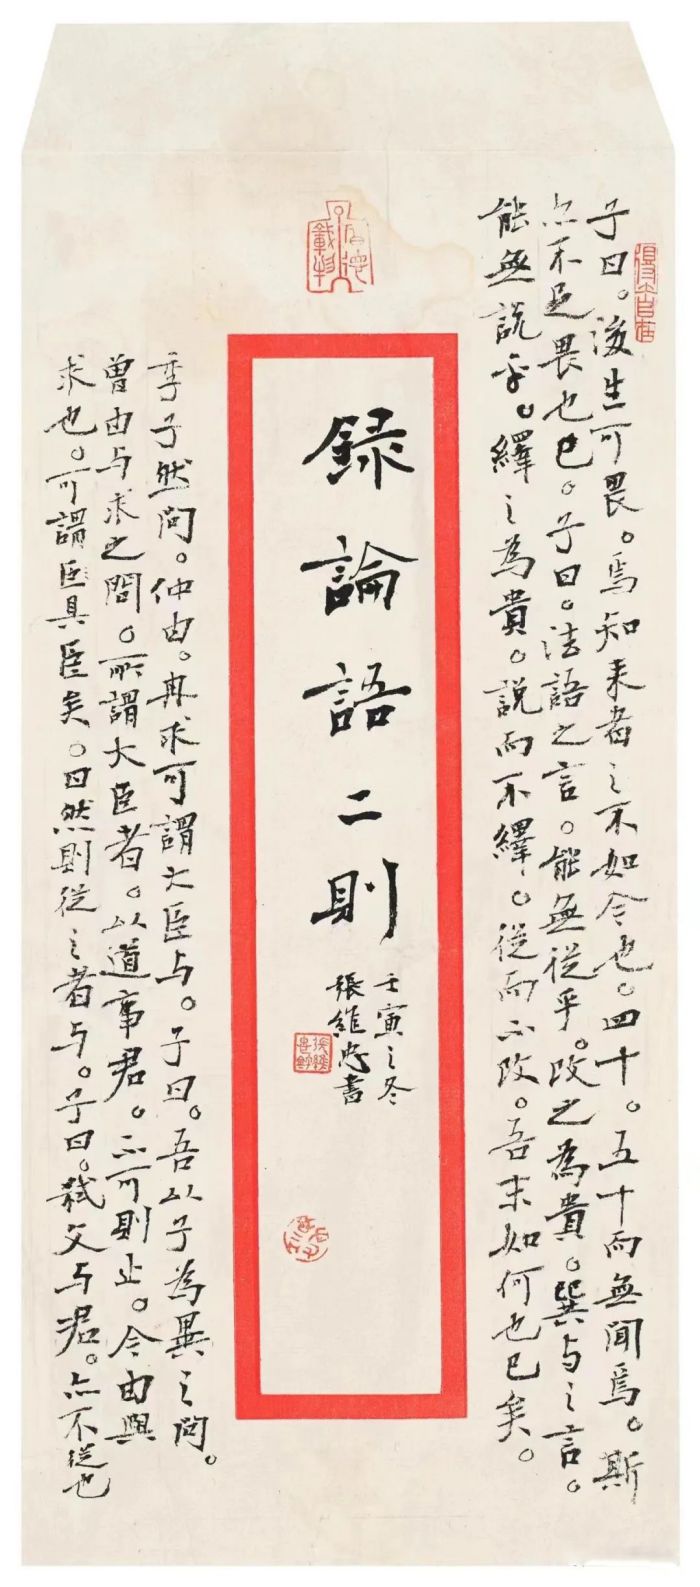 得大自在
子曰。後生可畏。焉知来者之不如今也。四十。五十而無聞焉。斯
亦不足畏也已。子曰。法語之言。能無從乎。改之為貴。巽与之言。
能無説乎。繹之為貴。説而不繹。從而不改。吾末如何也已矣。
厚德載物
録論語二則
壬寅之冬
張維忠書
季子然問。仲由。冉求可謂大臣与。子曰。吾以子為異之問。
曾由与求之問。所謂大臣者。以道事君。不可則止。今由與
求也。可謂臣具臣矣。曰然則從之者与。子曰。弒父与君。亦不從也